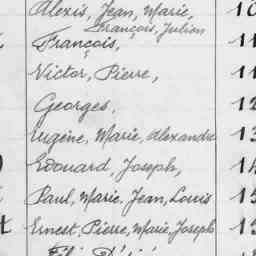 Alexis, Jean, Marie, 10
François, Julien
François, 11
Victor, Pierre, 11
Georges, 12
Eugène, Marie, Alexandre 13
Edouard, Joseph, 14
Paul, Marie, Jean, Louis 15
Ernest, Pierre, Marie, Joseph 15